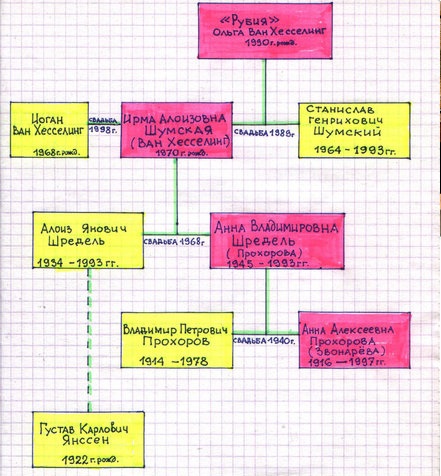 «Рубия»
Ольга Ван Хесселинг
1990 г. рожд.
Цоган
Ван Хесселинг
1968 г. рожд.
свадьба
1998 г.
Ирма Алоизовна
Шумская
(Ван Хесселинг)
1970 г. рожд.
свадьба 1988 г.
Станислав
Генрихович
Шумский
1964 - 1993 гг.
Алоиз Янович
Шредель
1934 - 1993 гг.
свадьба 1968 г
Анна Владимировна
Шредель
(Прохорова)
1945 - 1993 гг.
Владимир Петрович
Прохоров
1914 - 1978
свадьба 1940 г.
Анна Алексеевна
Прохорова
(Звонарёва)
1916 - 1997 гг.
Густав Карлович
Янссен
1922 г. рожд.